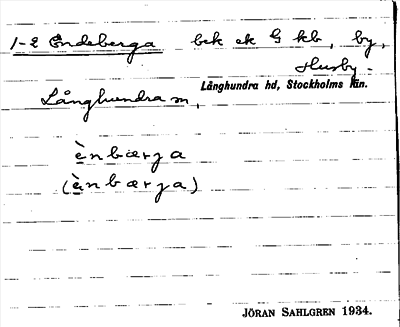 1-2 Endeberga bek ek G kb, by,
Husby-
Långhundra hd, Stockholms län.
Långhundra m,
ènbærja
(ànbærja)
JÖRAN SAHLGREN 1934.